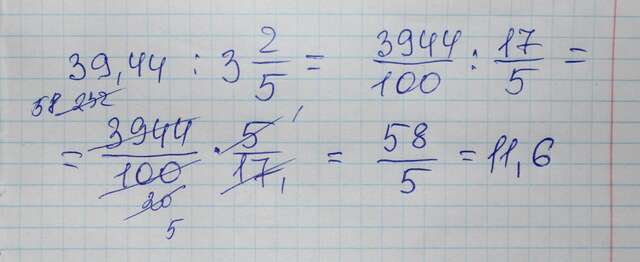 39,44 : 3 2/5 = 3944/100 : 17/5 =
58 232
= 3944/100 · 5/17 = 58/5 = 11,6
1
1
20
5